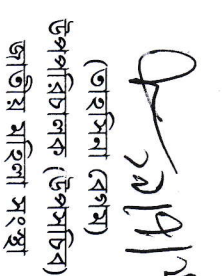 (তাহমিনা বেগম)
উপপরিচালক (উপসচিব)
জাতীয় মহিলা সংস্থা